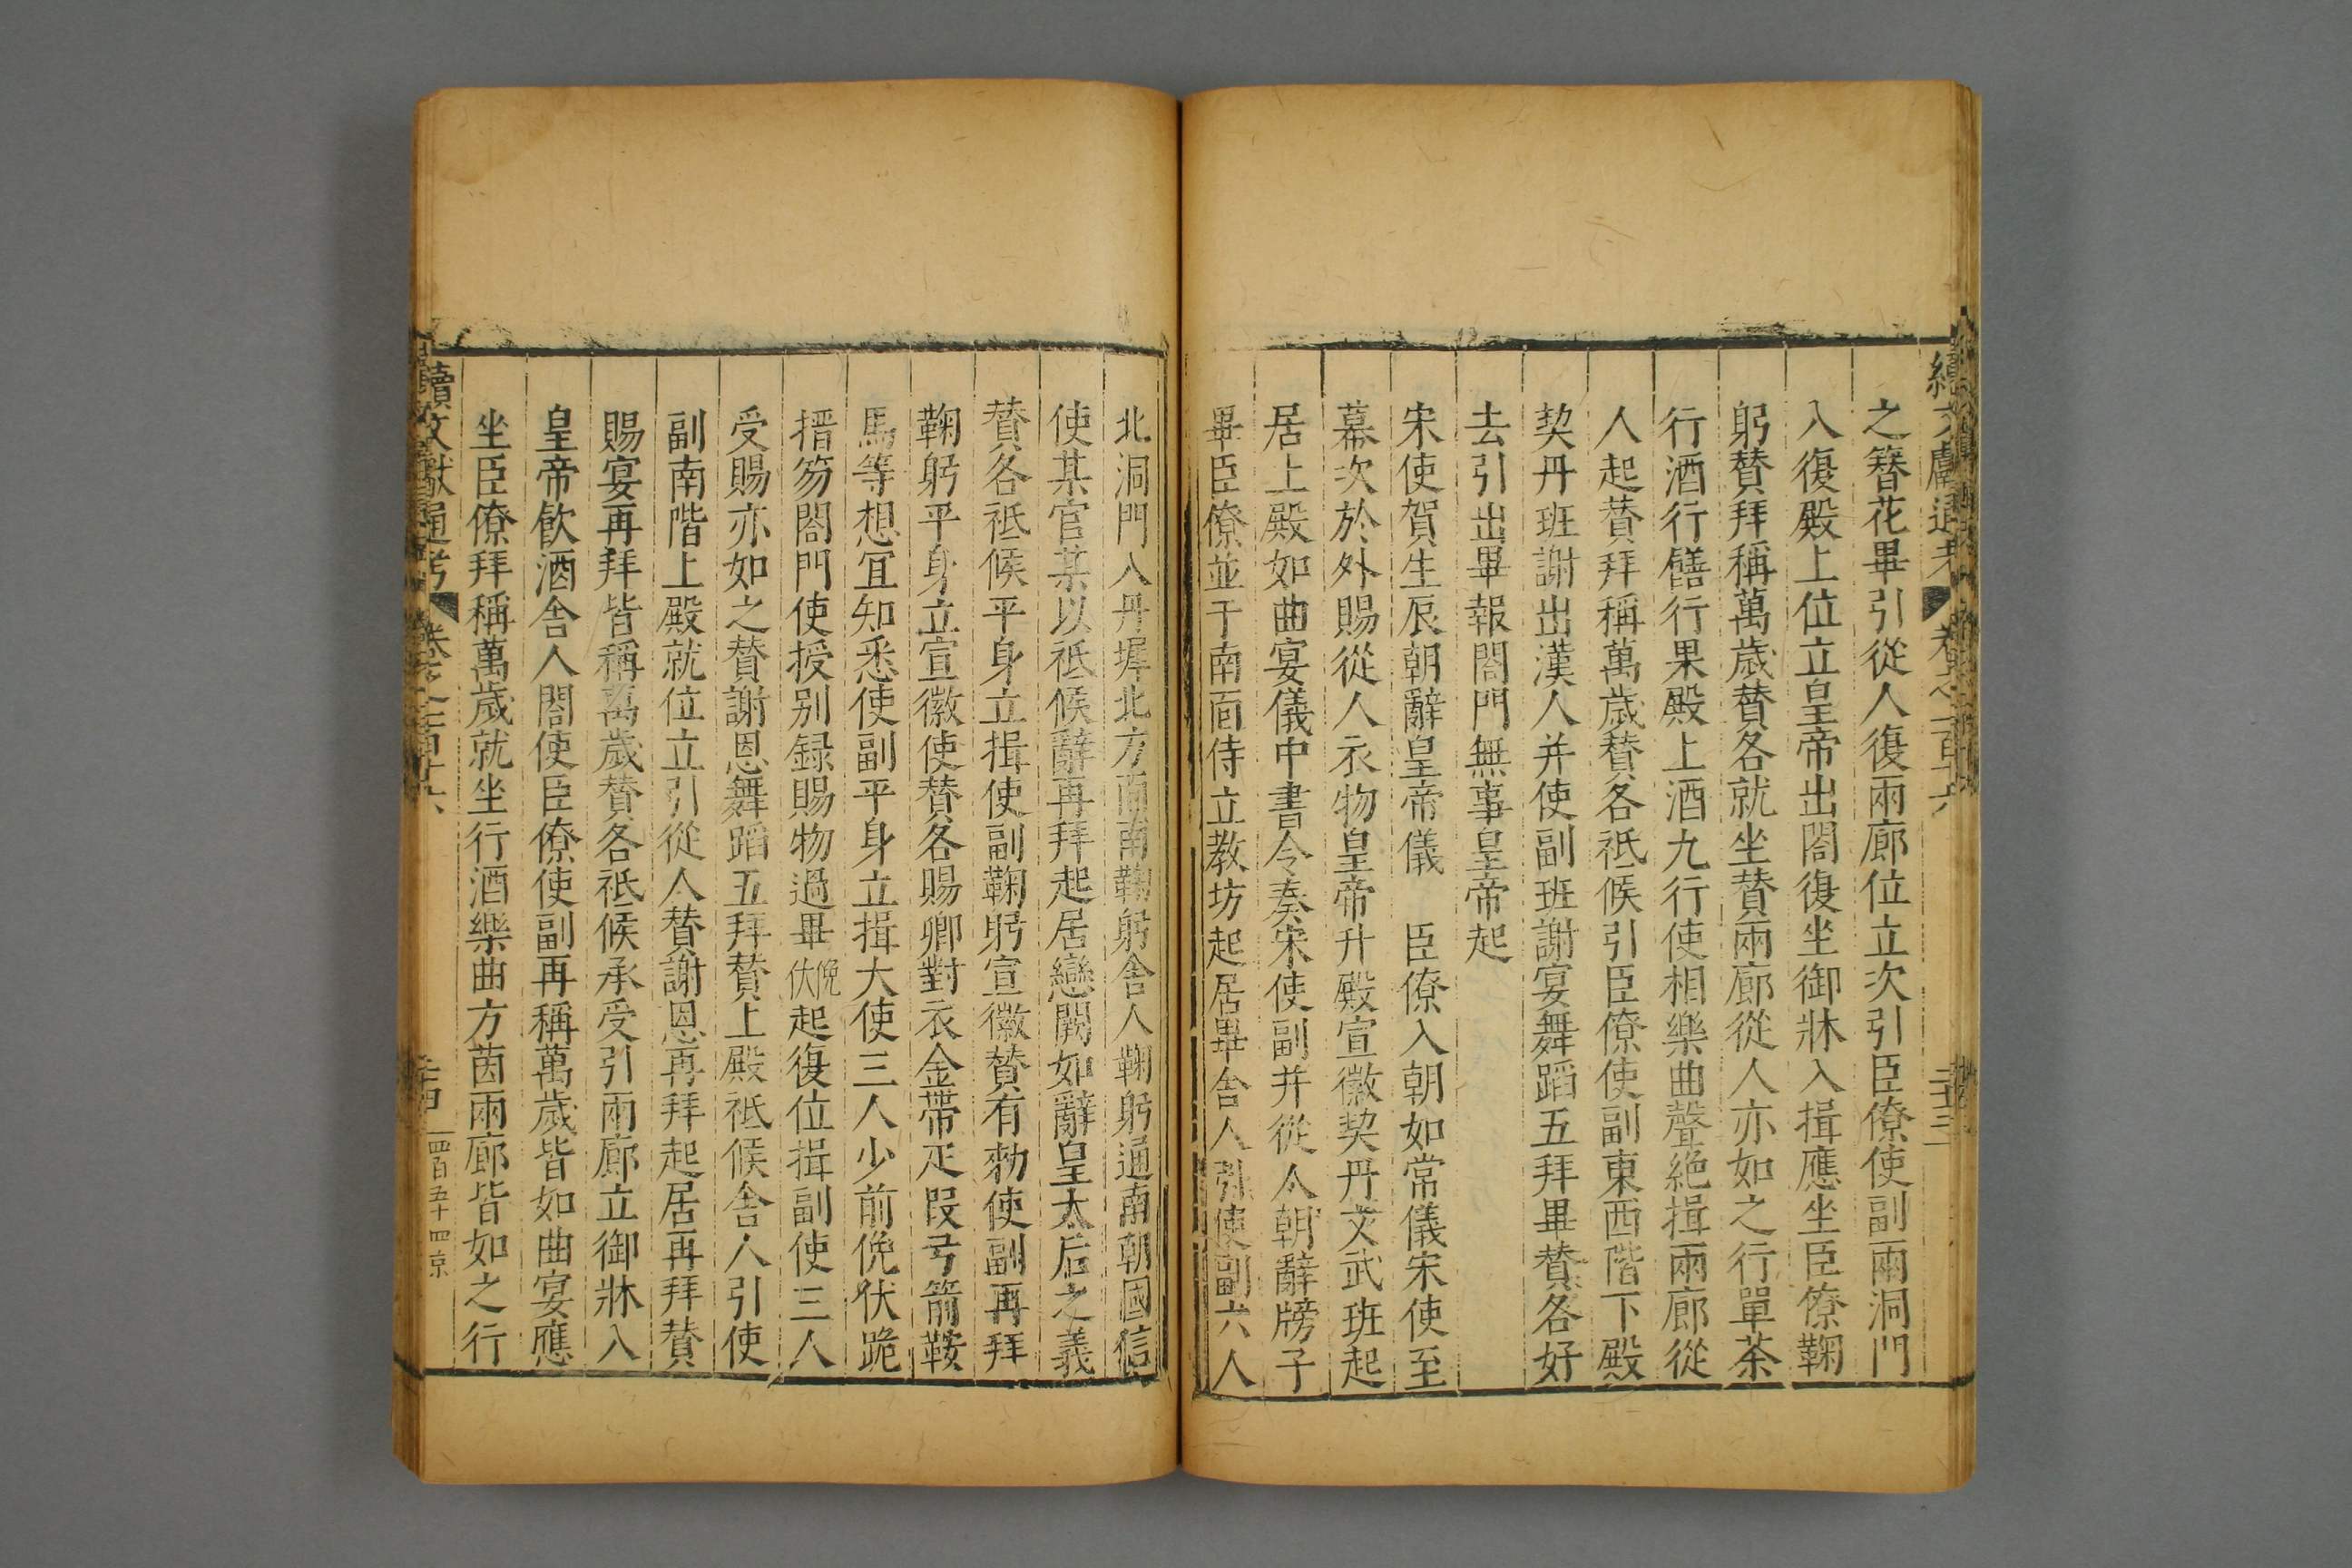 之簪花畢引從人復兩廊位立次引臣僚使副兩洞門
入復殿上位立皇帝出閤復坐御牀入揖應坐臣僚鞠
躬贊拜稱萬歲贊各就坐贊兩廊從人亦如之行單茶
行酒行饍行果殿上酒九行使相樂曲聲絕揖兩廊從
人起贊拜稱萬歲贊各祗候引臣僚使副東西階下殿
契丹班謝出漢人并使副班謝宴舞蹈五拜畢贊各好
去引出畢報閤門無事皇帝起
宋使賀生辰朝辭皇帝儀　臣僚入朝如常儀宋使至
幕次於外賜從人衣物皇帝升殿宣徽契丹文武班起
居上殿如曲宴儀中書令奏宋使副并從人朝辭牓子
畢臣僚並于南面侍立教坊起居畢舍人引使副六人
北洞門入丹墀北方面南鞠躬舍人鞠躬通南朝國信
使某官某以祗候辭再拜起居戀闕如辭皇太后之義
贊各祗候平身立揖使副鞠躬宣徽贊有勑使副再拜
鞠躬平身立宣徽使贊各賜卿對衣金帶疋段弓箭鞍
馬等想宜知悉使副平身立揖大使三人少前俛伏跪
搢笏閤門使授別録賜物過畢俛伏起復位揖副使三人
受賜亦如之贊謝恩舞蹈五拜贊上殿祗候舍人引使
副南階上殿就位立引從人贊謝恩再拜起居再拜贊
賜宴再拜皆稱萬歲贊各祗候承受引兩廊立御牀入
皇帝飲酒舍人閤使臣僚使副再稱萬歲皆如曲宴應
坐臣僚拜稱萬歲就坐行酒樂曲方茵兩廊皆如之行
續文獻通考
四百五十四京